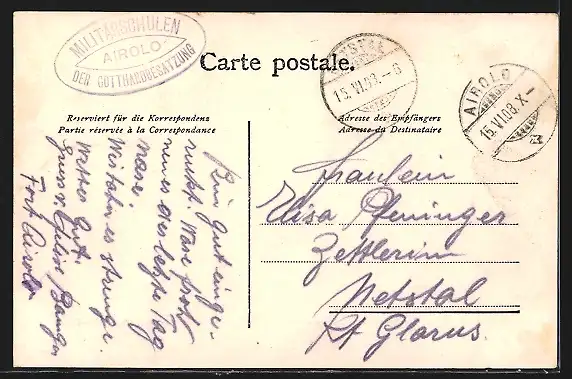 MILITÄRSCHULEN
AIROLO
DER GOTTHARDBESATZUNG
Carte postale.
NETSTAL
15.VI.08.-8
AIROLO
15.VI.08.X-
Reserviert für die Korrespondenz
Partie réservée à la Correspondance
Adresse des Empfängers
Adresse du Destinataire
Bin gut einge-
rückt. Wäre froh
wenn es der letzte Tag
wäre.
strenge.
Gruss v.
Fort Airolo
Fräulein
Elisa Pfeninger
Zettlerin
Netstal
Kt Glarus.